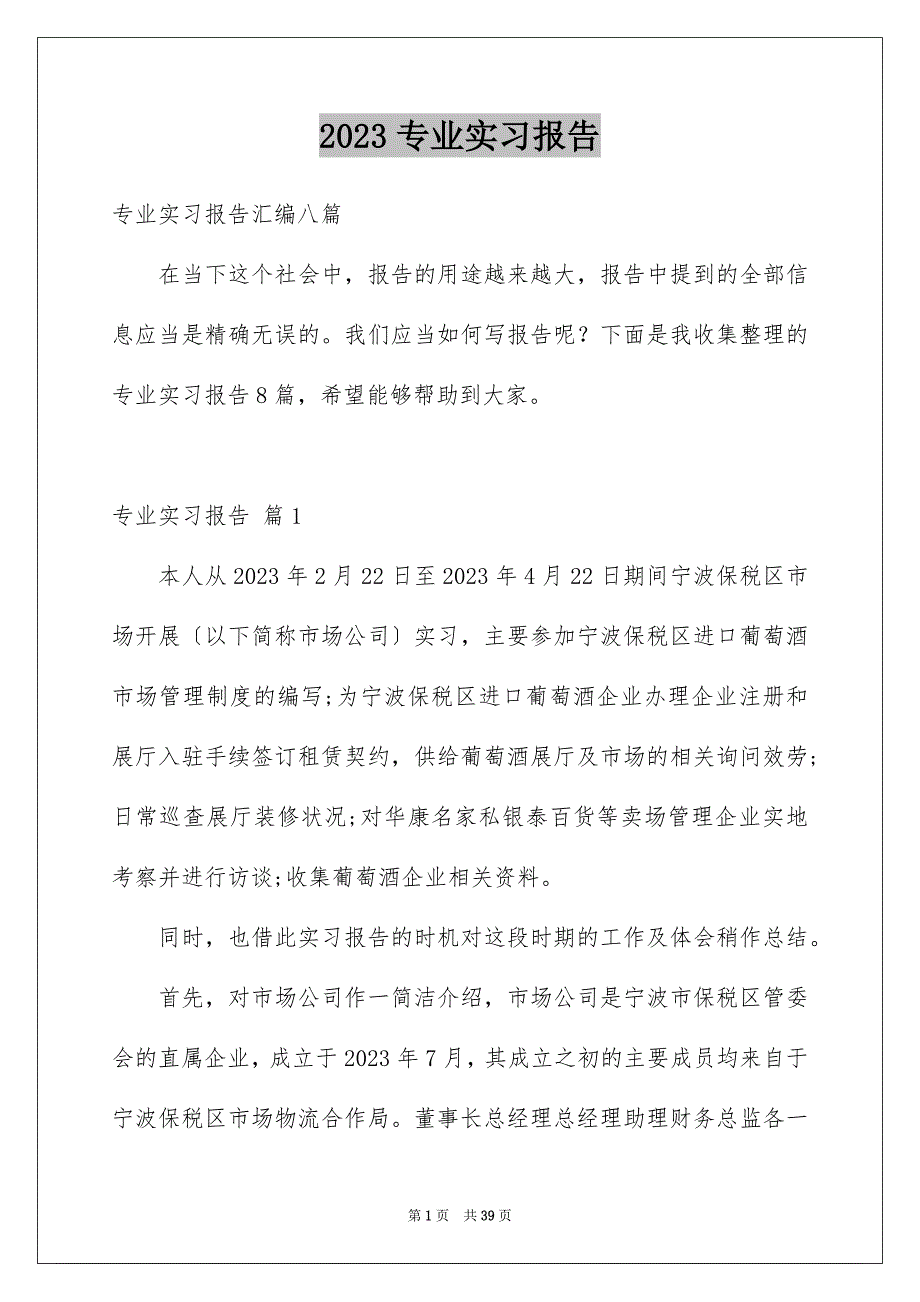 2023专业实习报告
专业实习报告汇编八篇
在当下这个社会中，报告的用途越来越大，报告中提到的全部信
息应当是精确无误的。我们应当如何写报告呢？下面是我收集整理的
专业实习报告8篇，希望能够帮助到大家。
专业实习报告 篇1
本人从2023年2月22日至2023年4月22日期间宁波保税区市
场开展〔以下简称市场公司〕实习，主要参加宁波保税区进口葡萄酒
市场管理制度的编写;为宁波保税区进口葡萄酒企业办理企业注册和
展厅入驻手续签订租赁契约，供给葡萄酒展厅及市场的相关询问效劳;
日常巡查展厅装修状况;对华康名家私银泰百货等卖场管理企业实地
考察并进行访谈;收集葡萄酒企业相关资料。
同时，也借此实习报告的时机对这段时期的工作及体会稍作总结。
首先，对市场公司作一简洁介绍，市场公司是宁波市保税区管委
会的直属企业，成立于2023年7月，其成立之初的主要成员均来自于
宁波保税区市场物流合作局。董事长总经理总经理助理财务总监各一
第1页 共39页